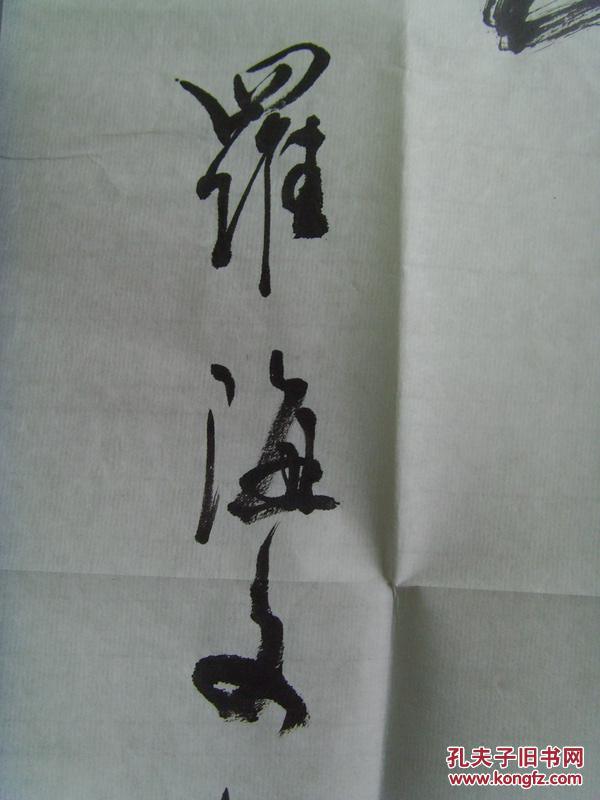 羅海文
孔夫子旧书网
www.kongfz.com